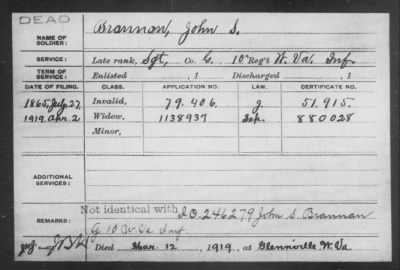 DEAD
NAME OF SOLDIER: Brannan, John S.
SERVICE: Late rank, Sgt, Co. G, 10" Reg't W. Va. Inf.
TERM OF SERVICE: Enlisted , 1 Discharged , 1
DATE OF FILING. CLASS. APPLICATION NO. LAW. CERTIFICATE NO.
1865, July 27, Invalid, 79.406. J 51.915.
1919 Apr. 2 Widow, 1138937 880028
Minor,
ADDITIONAL SERVICES:
REMARKS: Not identical with I O 246279 John S Brannan
G 10 W Va Inf.
Died Mar. 12, 1919, at Glennville W. Va